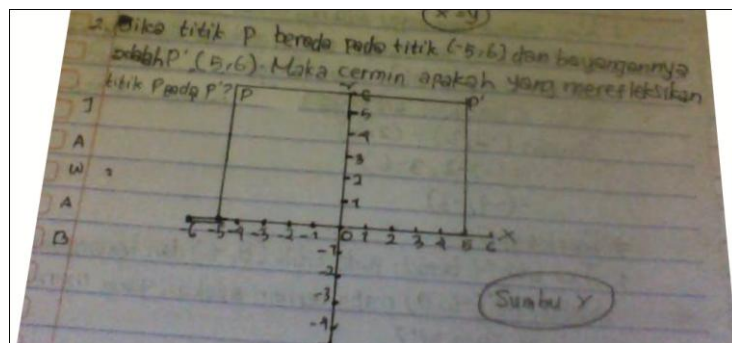 x = y
2. Jika titik P berada pada titik (-5,6) dan bayangannya
adalah P' (5,6). Maka cermin apakah yang merefleksikan
titik P pada P'?
P
Y
6
P'
5
4
3
2
1
-6 -5 -4 -3 -2 -1 0 1 2 3 4 5 6 X
-1
-2
-3
-4
J
A
W
A
B
Sumbu Y